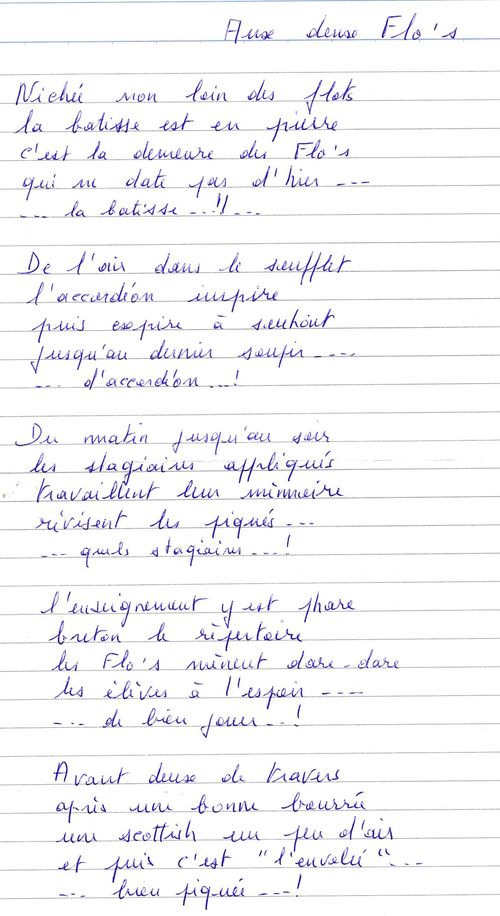 Aux deux Flo's
Nichée non loin des flots
la batisse est en pierre
c'est la demeure des Flo's
qui ne date pas d'hier ---
--- la batisse ...!! ...
De l'air dans le soufflet
l'accordéon inspire
puis expire à souhait
jusqu'au dernier soupir ----
--- d'accordéon ...!
Du matin jusqu'au soir
les stagiaires appliqués
travaillent leur mémoire
révisent les piqués ---
--- quels stagiaires ---!
l'enseignement y est phare
breton le répertoire
les Flo's mènent dare-dare
les élèves à l'espoir ----
--- de bien jouer ...!
Avant deux de travers
après une bonne bourrée
une scottish un peu d'air
et puis c'est "l'envolée" ---
--- bien piquée ---!